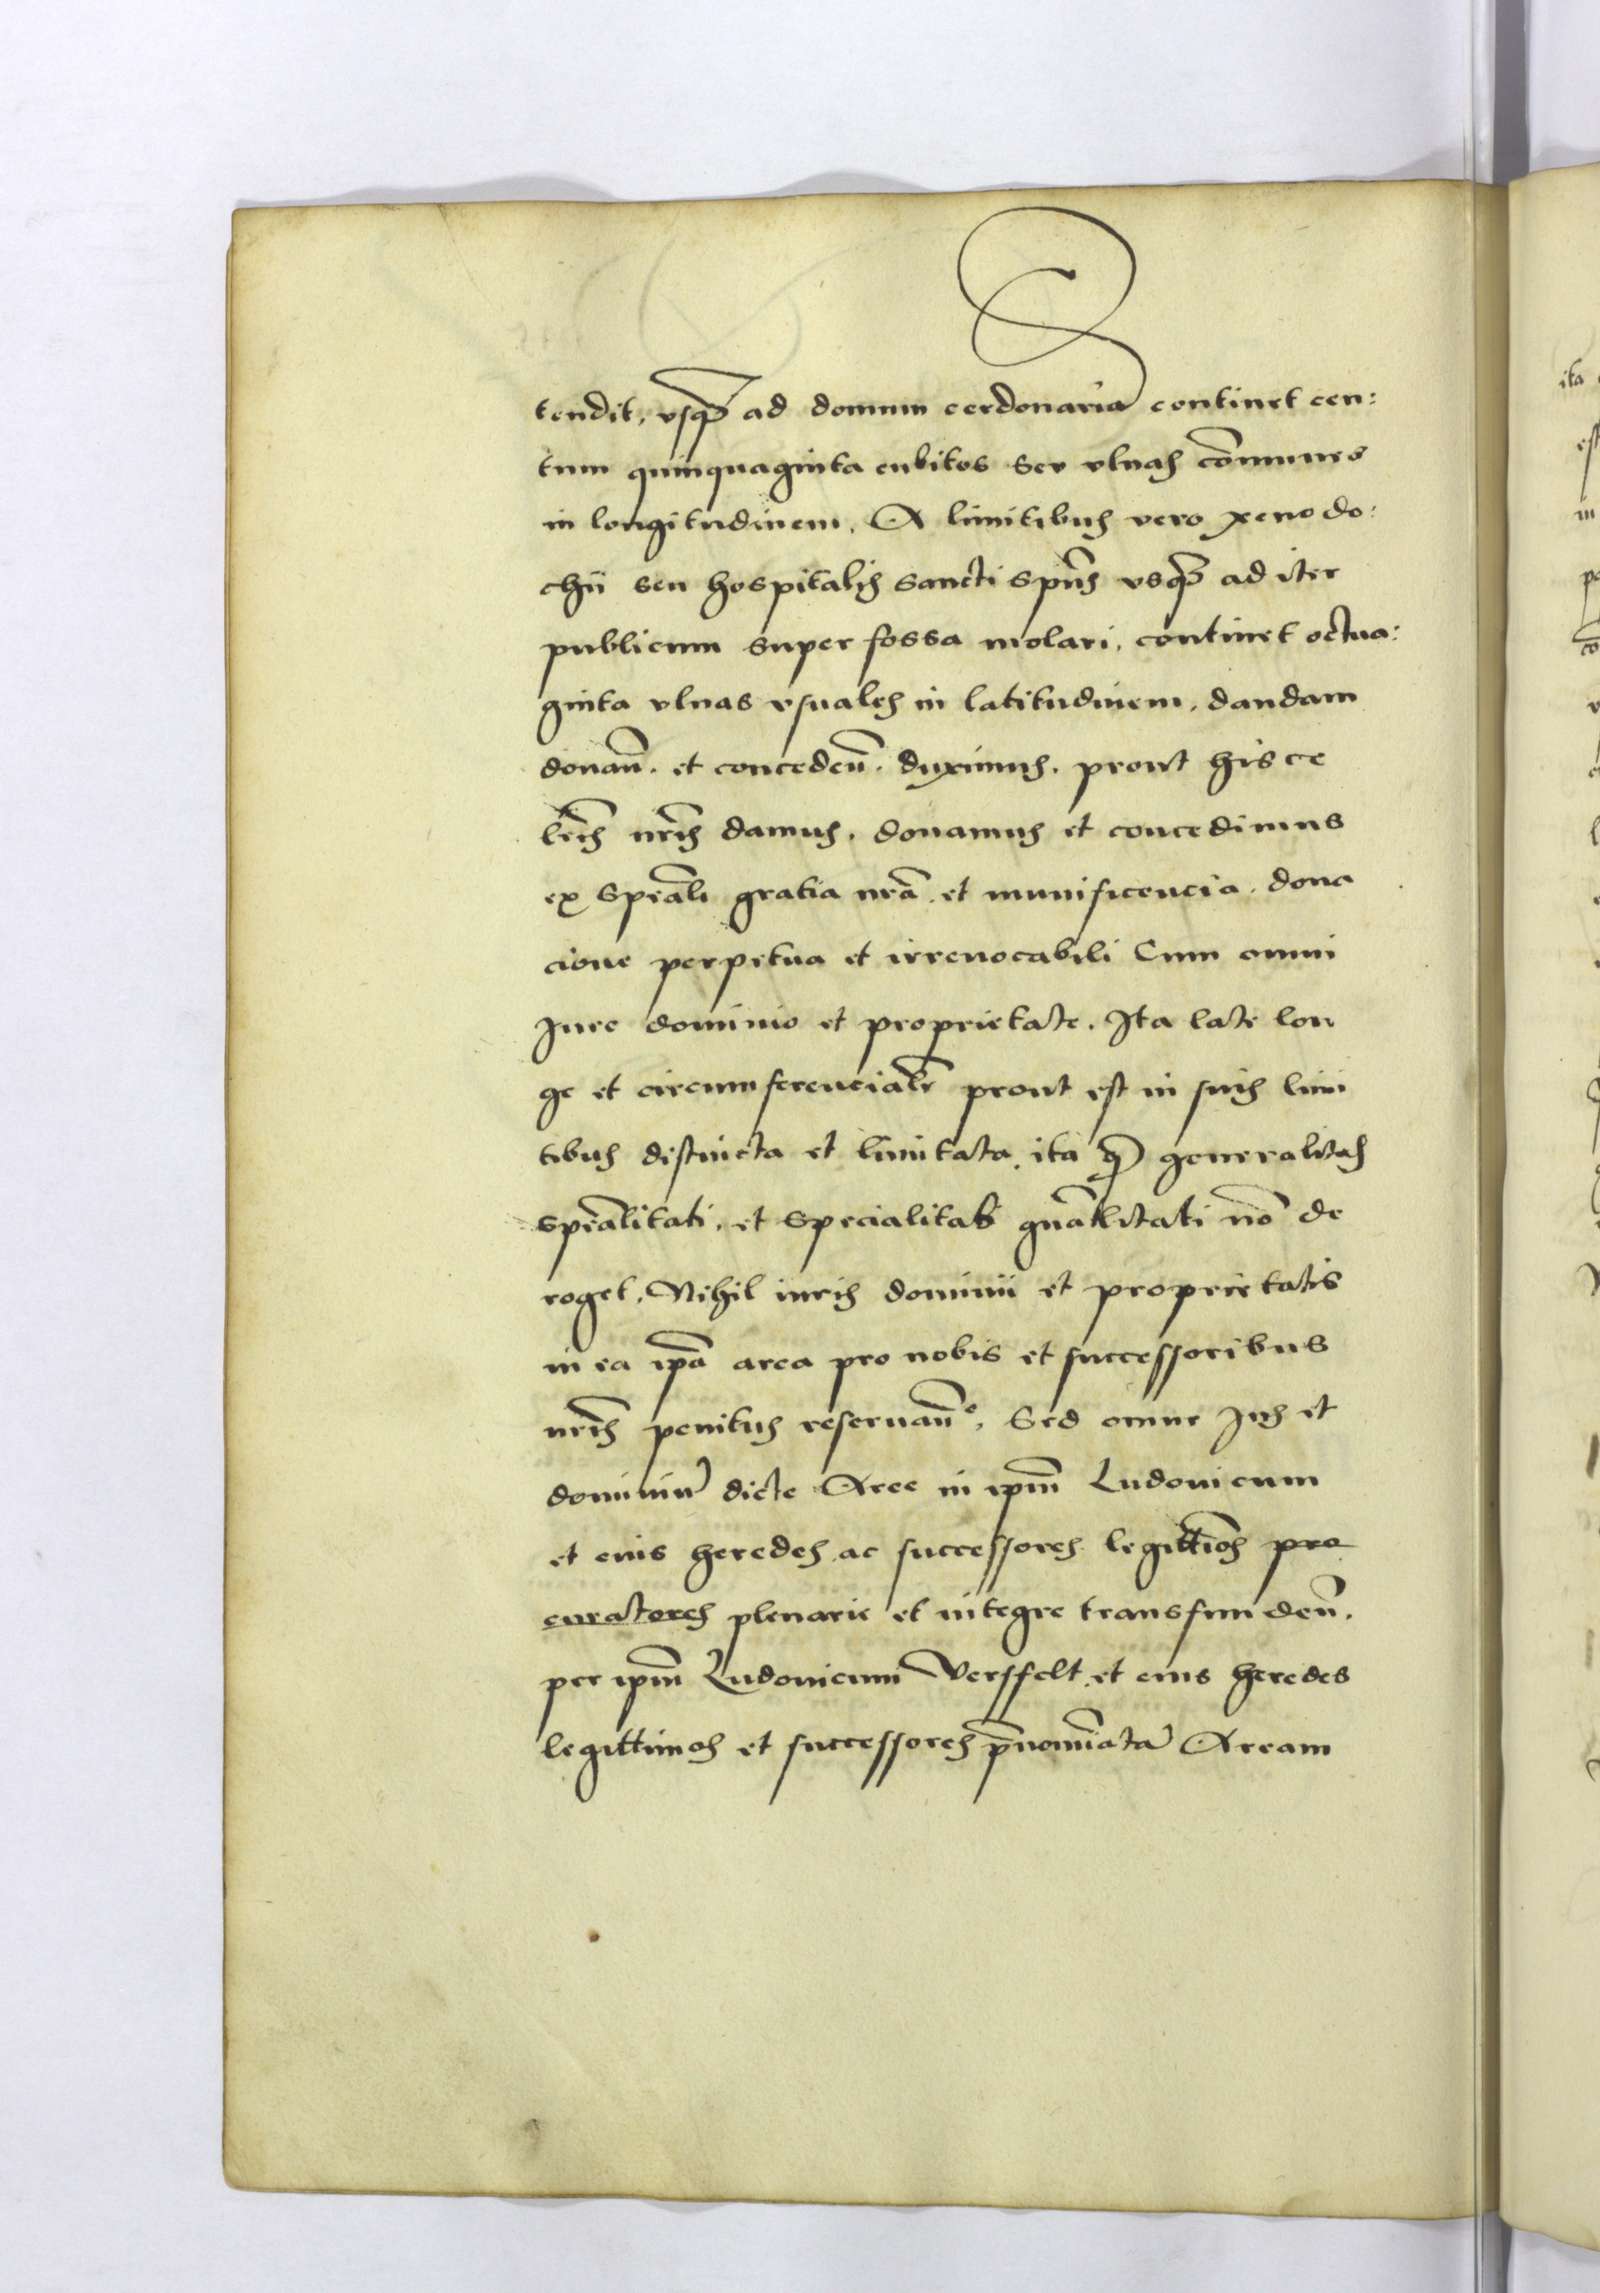 tendit, vsq̃ ad domum cerdonaria continet cen:
tum quinquaginta cubitos seu vlnas cõmunes
in longitudinem. A limitibus vero xenodo:
chii seu hospitalis sancti Spũs vsq̃ ad iter
publicum super fossa molari, continet octua:
ginta vlnas vsuales in latitudinem, dandam
donañ. et concedeñ. duximus. prout hisce
lr̃is nr̃is damus, donamus et concedimus
ex spẽali gratia nr̃a et munificencia. dona
cione perpetua et irreuocabili Cum omni
Jure dominio et proprietate. Ita late lon
ge et circumferencialr̃ prout est in suis limi
tibus distincta et limitata, ita q̃ generalitas
spẽalitati, et specialitas gñalitati nõ de
roget, Nihil iuris dominii et proprietatis
in ea ip̃a area pro nobis et successoribus
nr̃is penitus reseruañ. Sed omne Jus et
dominiũ dicte Aree in ip̃m Ludouicum
et eius heredes ac successores legittĩos pro
curatores plenarie et integre transfundeñ.
per ip̃m Ludouicum Versfelt et eius heredes
legittimos et successores p̃nomĩatã Aream